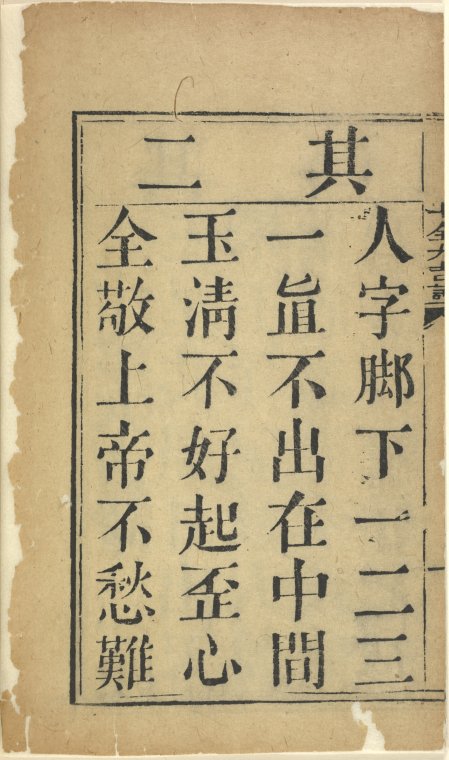 十全大吉詩
一
其二
人字脚下一二三
一直不出在中間
玉清不好起歪心
全敬上帝不愁難